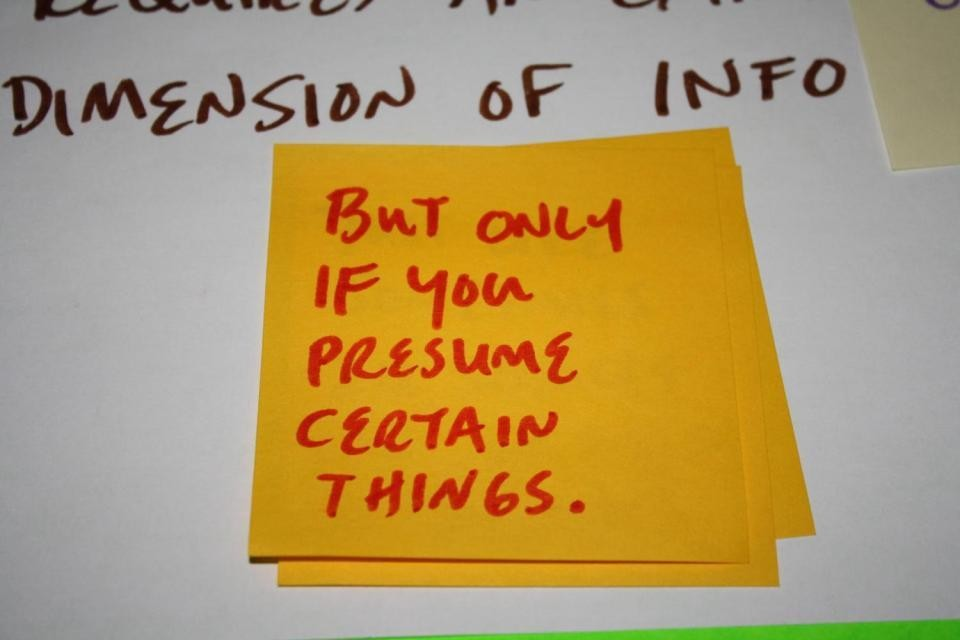 REQUIRES AN
DIMENSION OF INFO
BUT ONLY
IF YOU
PRESUME
CERTAIN
THINGS.